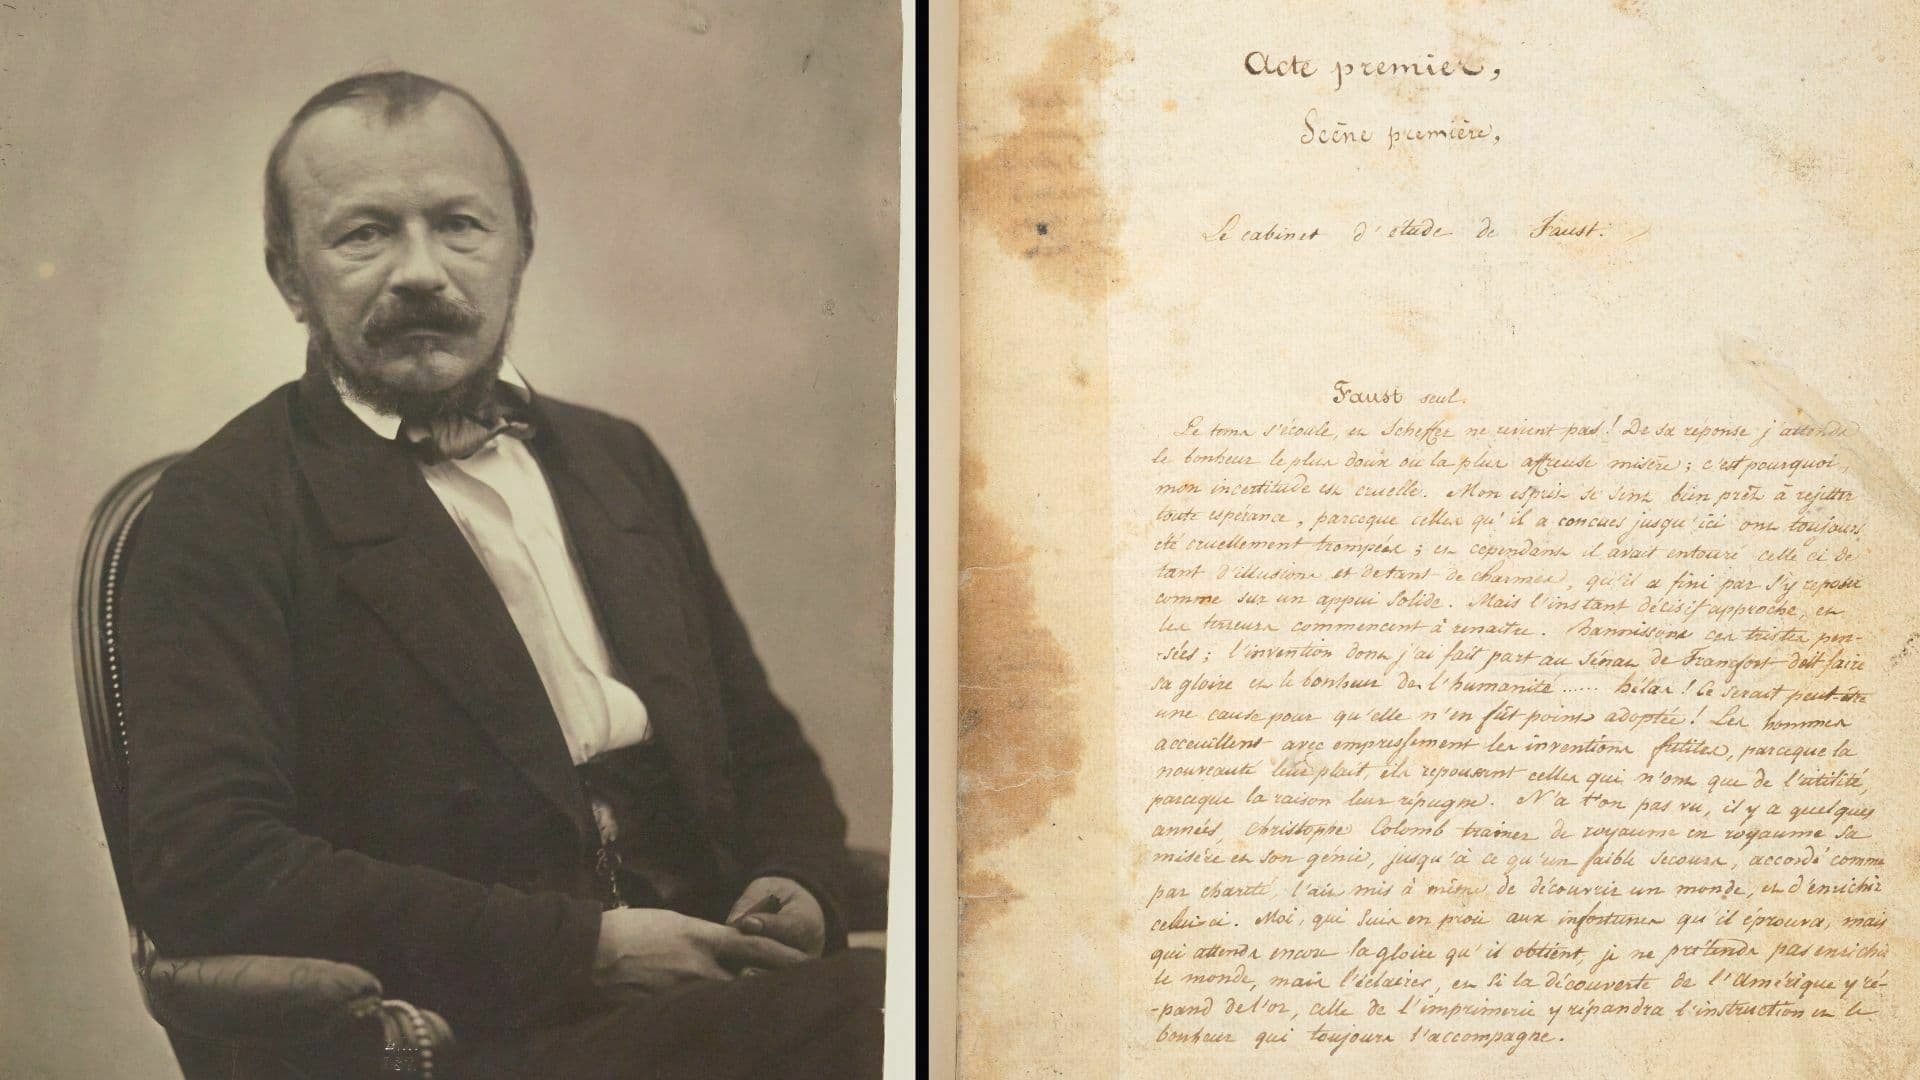 Acte premier,
Scène première,
Le cabinet d'étude de Faust.
Faust seul.
Le tems s'écoule, et Scheffer ne revient pas ! De sa réponse j'attends
le bonheur le plus doux ou la plus affreuse misère ; c'est pourquoi,
mon incertitude est cruelle. Mon esprit se sent bien prêt à rejetter
toute espérance, parceque celles qu'il a concues jusqu'ici ont toujours
été cruellement trompées ; et cependant il avait entouré celle ci de
tant d'illusions et de tant de charmes, qu'il a fini par s'y reposer
comme sur un appui solide. Mais l'instant décisif approche, et
les terreurs commencent à renaitre. Bannissons ces tristes pen-
-sées ; l'invention dont j'ai fait part au sénat de Francfort doit faire
sa gloire et le bonheur de l'humanité ...... hélas ! Ce serait peut-être
une cause pour qu'elle n'en fût point adoptée ! Les hommes
acceuillent avec empressement les inventions futiles, parceque la
nouveauté leur plait, ils repoussent celles qui n'ont que de l'utilité,
parceque la raison leur répugne. N'a t'on pas vu, il y a quelques
années, Christophe Colomb trainer de royaume en royaume sa
misère et son génie, jusqu'à ce qu'un faible secours, accordé comme
par charité, l'ait mis à même de découvrir un monde, et d'enrichir
celui ci. Moi, qui suis en proie aux infortunes qu'il éprouva, mais
qui attends encore la gloire qu'il obtient, je ne prétends pas enrichir
le monde, mais l'éclairer, et si la découverte de l'Amérique y ré-
-pand de l'or, celle de l'imprimerie y répandra l'instruction et le
bonheur qui toujours l'accompagne.